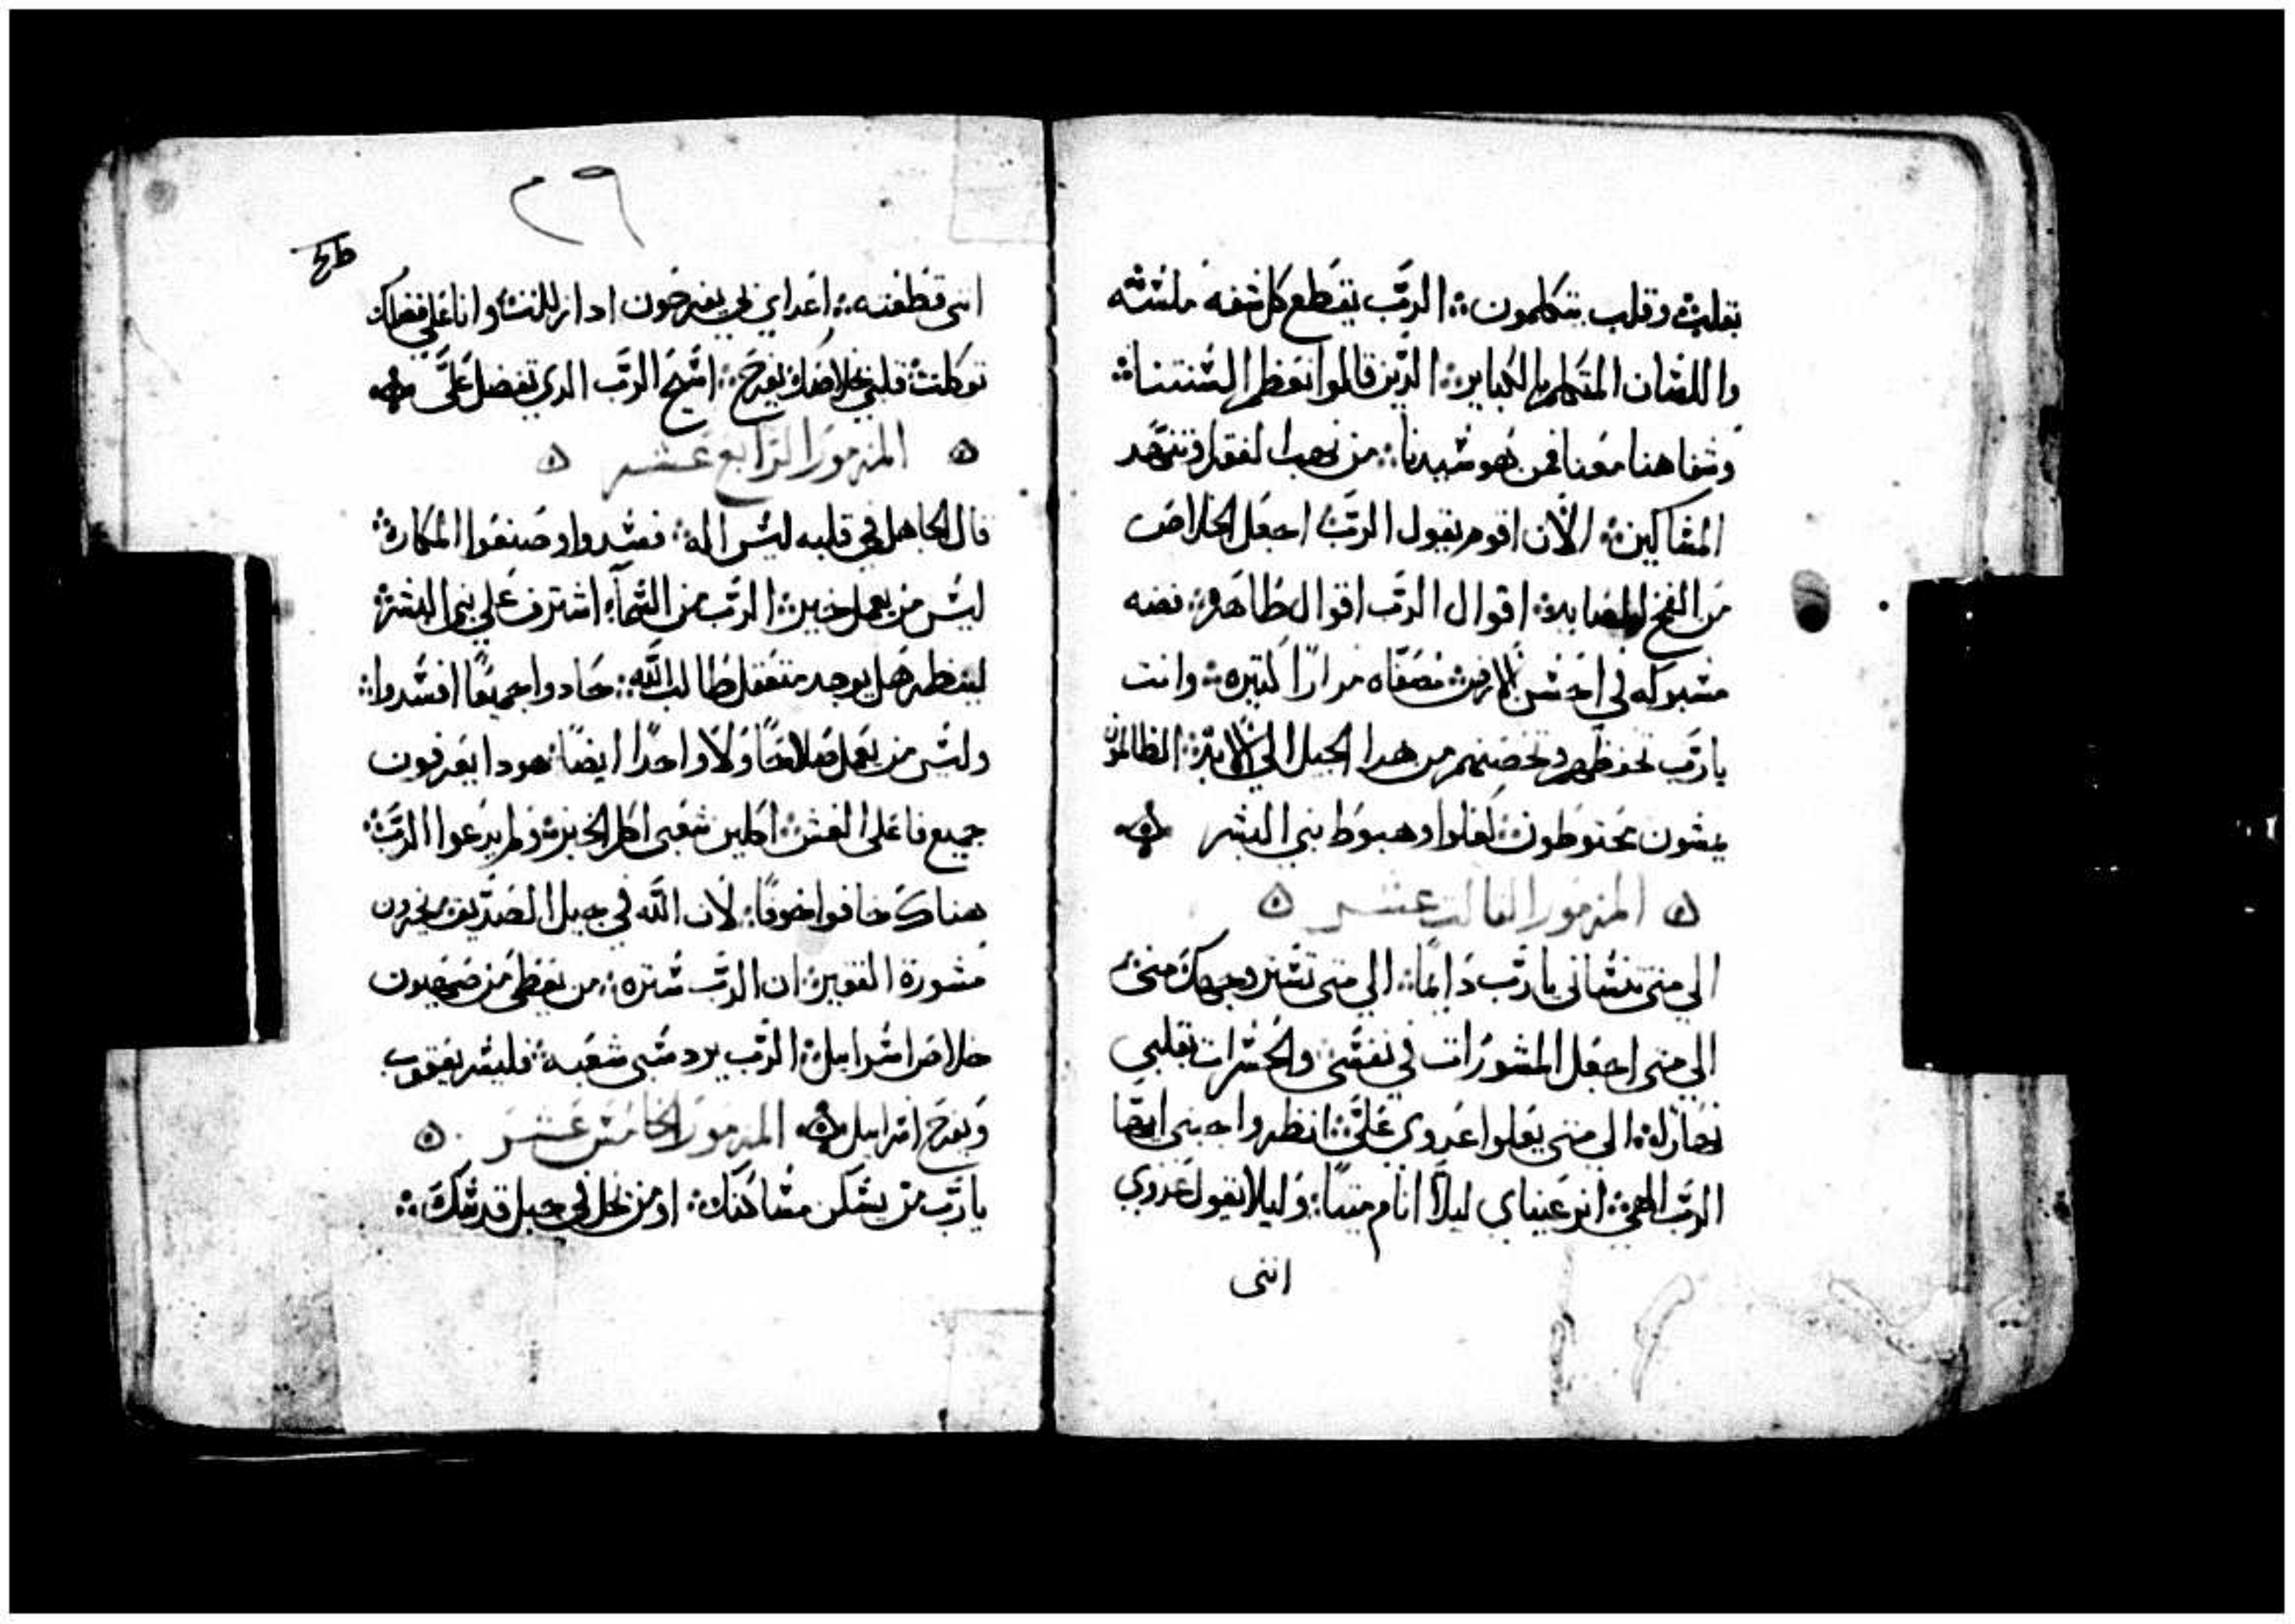 بقلب وقلب يتكلمون ܀ الرَّب يقطع كل شفه ملسَنه
واللسَان المتكلم بالكباير ܀ الذين قالوا نعظم السنتنا ܀
وشفاهنا معنا فمن هو سَيدنا ܀ من نهب الفقرا وتنهد
المسَاكين ܀ الآن اقوم يقول الرَّبُ اجعَل الخلاصَ
مَن الفخ المصَايد ܀ اقوال الرَّب اقوال طَاهَره ܀ فضه
مسَبوكه في الارض مصَفّاه مرارًا كتيره ܀ وانت
يارَّب تحفظهم وتحصَنهم من هدا الجيل الي الابد ܀ الظالمون
يمشون يحتوطون ܀ اهبوَط بني البشر
المزمور التالت عشر
الي متى تنسَاني يا رَّب دَايمًا ܀ الي متى تسَتر وجهك مني
الي متى اجعَل المشورات في نفسَي والحسَرات بقلبي
نهاره ܀ الي متى يعَلوا عَدوي عَلَيَّ ܀ انظر واجبني ايضًا
الرَّب الهي ܀ انر عَيناي ليلًا انام ميتًا ܀ وَليلا يقول عَدوي
انني
٢٩
اني قد ܀ اعَداي يفرحَون ادا زللت ܀ وانا عَلي فضلك
توكلت ܀ قلبي بخلاصَك يفرحَ ܀ اسَبح الرَّب الدي تفضل عَلَيَّ
المزمور الرَّابع عَشر
قال الجاهل في قلبه ليسَ اله ܀ فسَدوا وصَنعَوا المكاره ܀
ليسَ من يعمل خير ܀ الرَّب من السَمآء اشترف عَلي بني البشر ܀
لينظر هَل يوجد متفقل طَالب الله ܀ حَادوا جميعًا افسَدوا ܀
وليسَ من يعَمل صَلاحًا وَلاَ واحدًا ايضًا ܀ هودا يعَرفون
جميع فاعَلي الغش ܀ اكلين شعَبي اكل الخبز ܀ ولم يدعَوا الرَّب ܀
هناكَ خافوا خوفًا ܀ لاَن الله في جيل الصَدّيق ܀ يخزون
مَشورة الفقير ܀ ان الرَّب سَتره ܀ من يعَطي مَن صَهيون
خلاصَ اسَراييل ܀ الرَّب يرد سَبي شعَبه ܀ فليسَر يعَقوب
وَيفرحَ اسَراييل المزمور الخامسَ عَشر
يارَّب من يسَكن مسَاكنك ܀ او من يحل في جبل قدسَكَ ܀